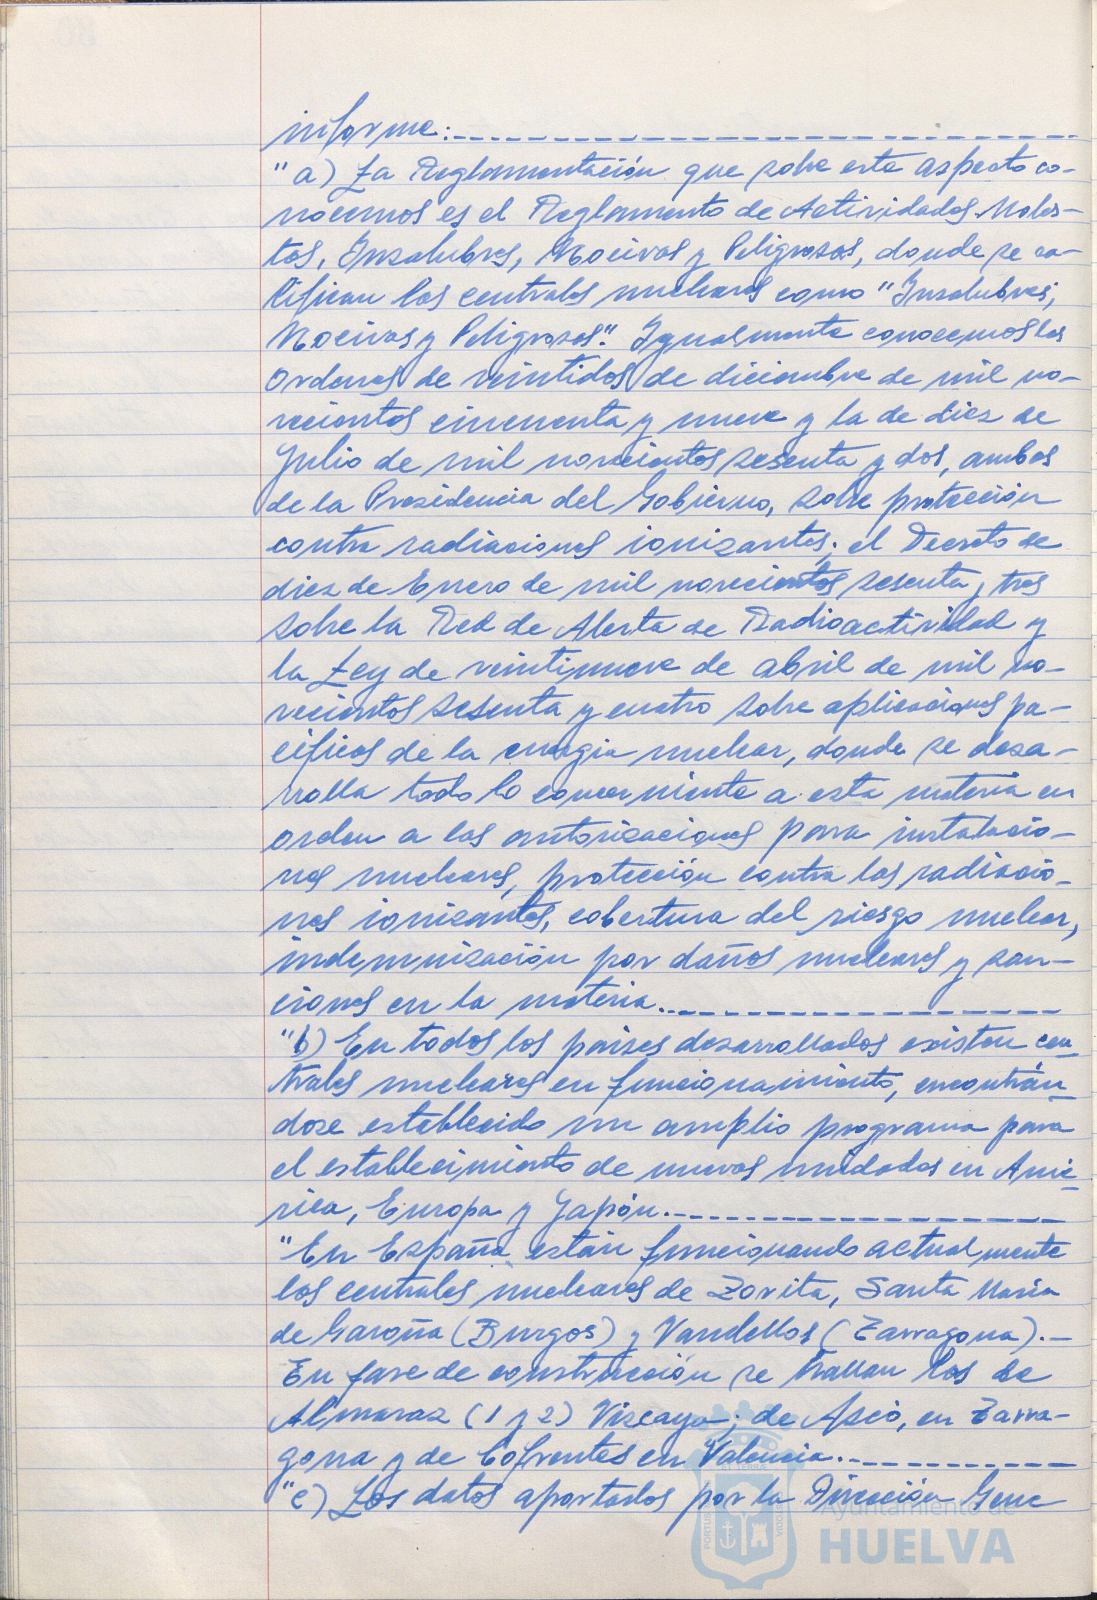 informe:
"a) La Reglamentación que sobre este aspecto co-
nocemos es el Reglamento de Actividades Moles-
tas, Insalubres, Nocivas y Peligrosas, donde se ca-
lifican las centrales nucleares como "Insalubres,
Nocivas y Peligrosas". Igualmente conocemos las
Ordenes de veintidos de diciembre de mil no-
vecientos cincuenta y nueve y la de diez de
Julio de mil novecientos sesenta y dos, ambas
de la Presidencia del Gobierno, sobre protección
contra radiaciones ionizantes; el Decreto de
diez de Enero de mil novecientos sesenta y tres
sobre la Red de Alerta de Radioactividad y
la Ley de veintinueve de abril de mil no-
vecientos sesenta y cuatro sobre aplicaciones pa-
cíficas de la energía nuclear, donde se desa-
rrolla todo lo concerniente a esta materia en
orden a las autorizaciones para instalacio-
nes nucleares, protección contra las radiacio-
nes ionizantes, cobertura del riesgo nuclear,
indemnización por daños nucleares y san-
ciones en la materia.
"b) En todos los países desarrollados existen cen-
trales nucleares en funcionamiento, encontrán-
dose establecido un amplio programa para
el establecimiento de nuevas unidades en Amé-
rica, Europa y Japón.
"En España están funcionando actualmente
las centrales nucleares de Zorita, Santa María
de Garoña (Burgos) y Vandellos (Tarragona).-
En fase de construcción se hallan las de
Almaraz (1 y 2) Vizcaya; de Ascó, en Tarra-
gona y de Cofrentes en Valencia.
"c) Los datos aportados por la Dirección Gene
Ayuntamiento de
HUELVA